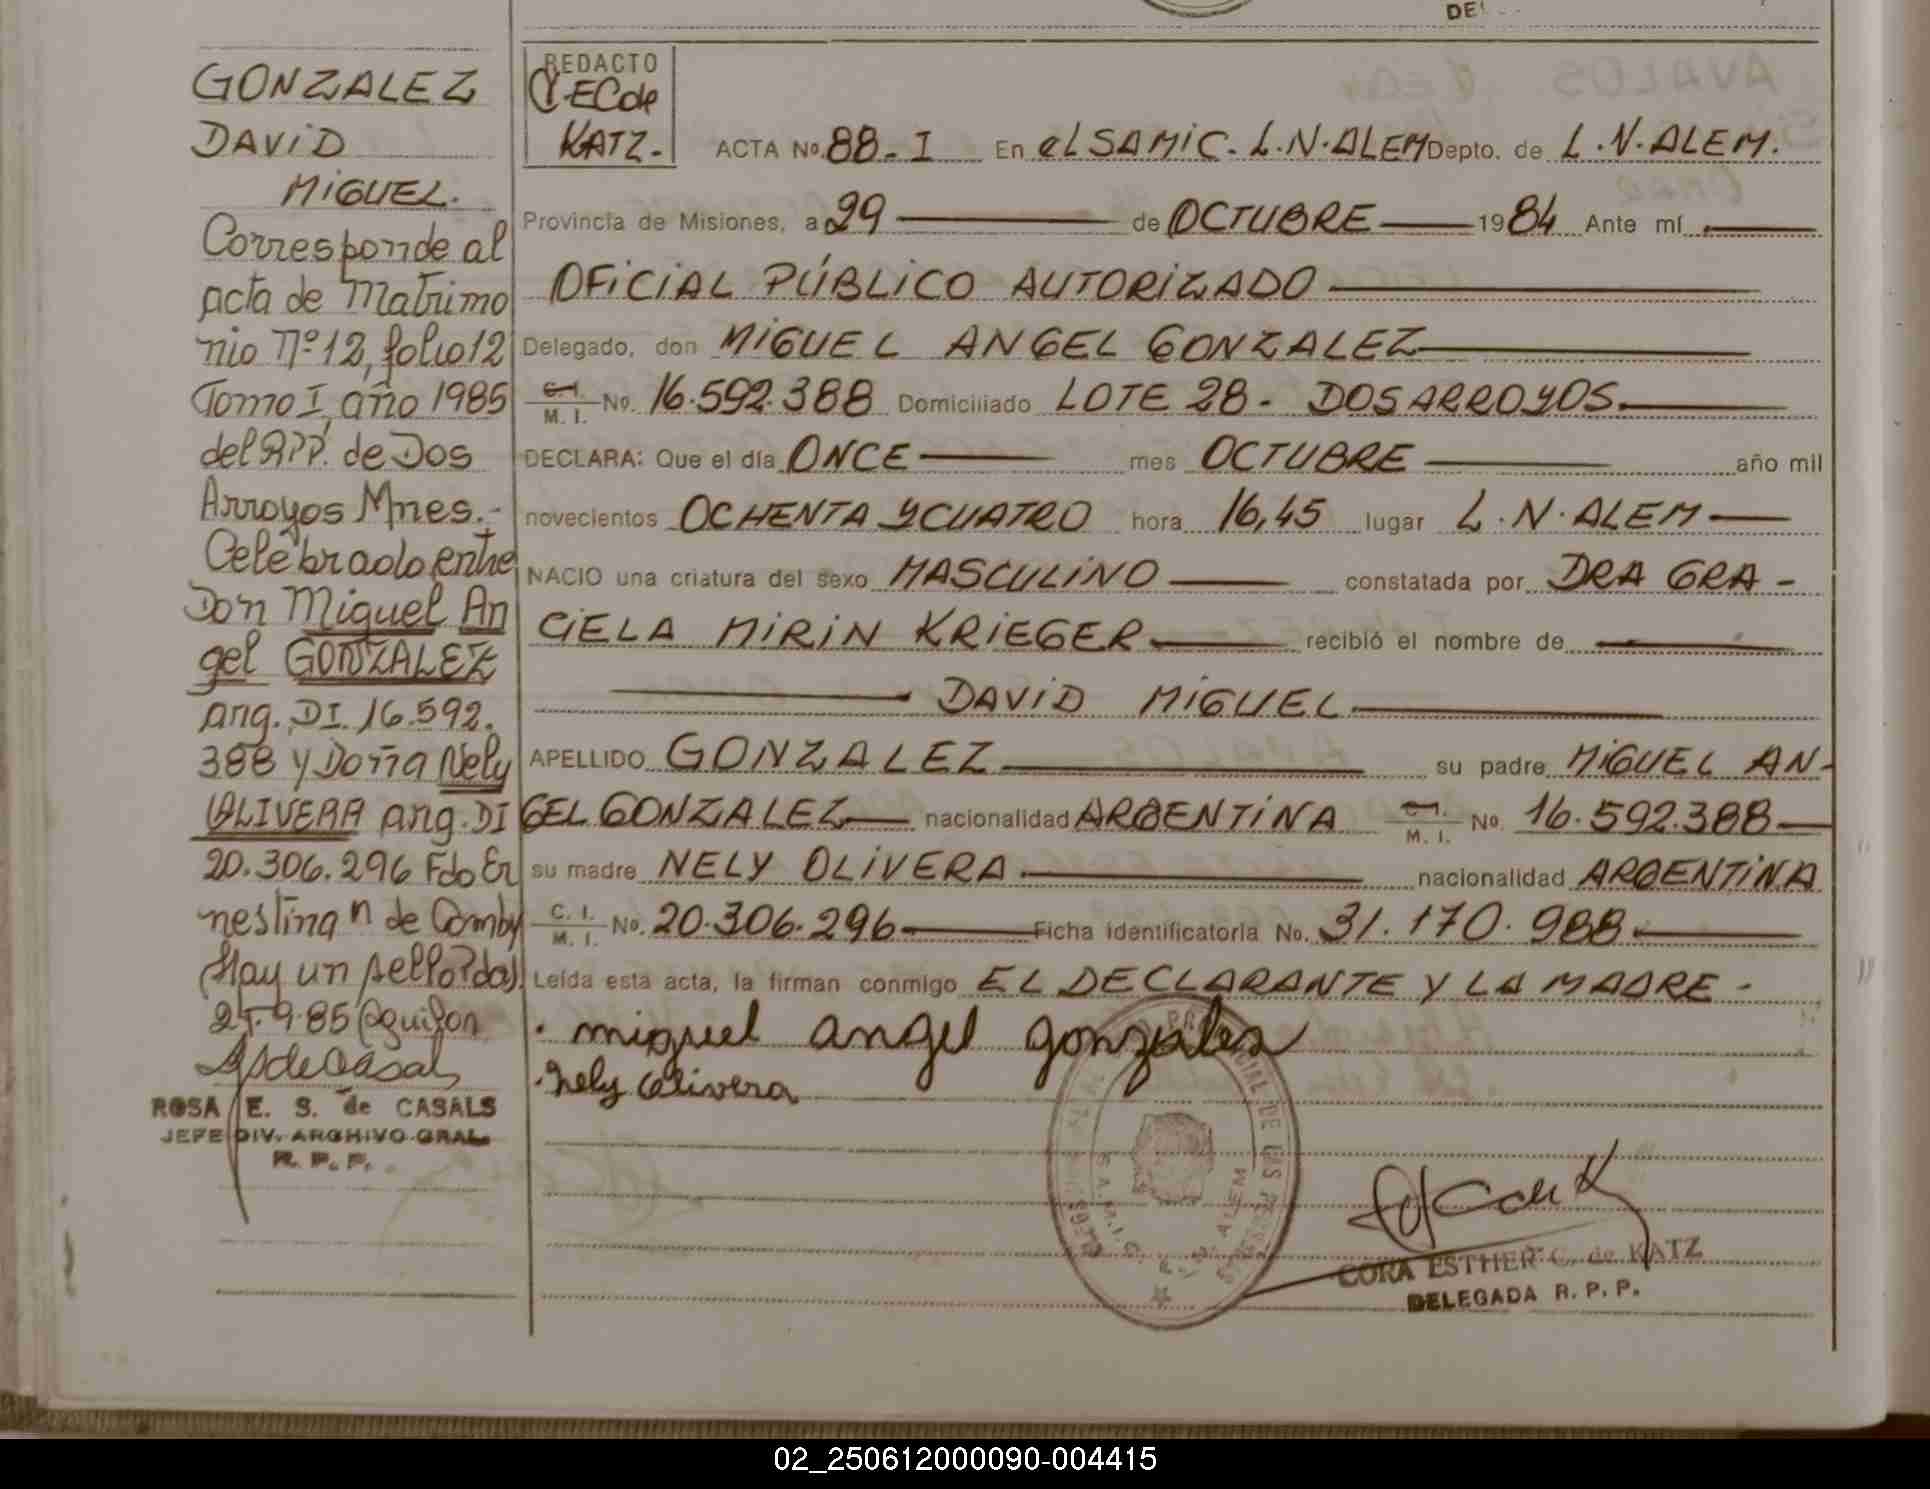 DE
GONZALEZ
DAVID
MIGUEL.
Corresponde al
acta de Matrimo
nio Nº 12, folio 12
Tomo I, año 1985
del RPP. de Dos
Arroyos Mnes.-
Celebrado entre
Don Miguel An
gel GONZALEZ
arg. DI. 16.592.
388 y Doña Nely
OLIVERA arg. DI
20.306.296 Fdo Er
nestina de Comby
(Hay un sello) Pdas
25.9.85
ROSA E. S. de CASALS
JEFE DIV. ARCHIVO GRAL.
R. P. P.
REDACTO
EC de
KATZ.-
ACTA No. 88-I En el SAMIC. L.N.ALEM Depto. de L.N.ALEM.
Provincia de Misiones, a 29 de OCTUBRE 1984 Ante mí
OFICIAL PÚBLICO AUTORIZADO
Delegado, don MIGUEL ANGEL GONZALEZ
C.I. M. I. No. 16.592.388 Domiciliado LOTE 28- DOS ARROYOS.
DECLARA: Que el día ONCE mes OCTUBRE año mil
novecientos OCHENTA Y CUATRO hora 16,45 lugar L.N.ALEM
NACIO una criatura del sexo MASCULINO constatada por DRA GRA-
CIELA MIRIN KRIEGER recibió el nombre de
DAVID MIGUEL
APELLIDO GONZALEZ su padre MIGUEL AN-
GEL GONZALEZ nacionalidad ARGENTINA C.I. M. I. No. 16.592.388
su madre NELY OLIVERA nacionalidad ARGENTINA
C. I. M. I. No. 20.306.296 Ficha identificatoria No. 31.170.988
Leída esta acta, la firman conmigo EL DECLARANTE Y LA MADRE -
miguel angel gonzalez
Nely Olivera
PROVINCIAL DE LAS
S.A.M.I.C. ALEM
CORA ESTHER C. de KATZ
DELEGADA R. P. P.
02_250612000090-004415